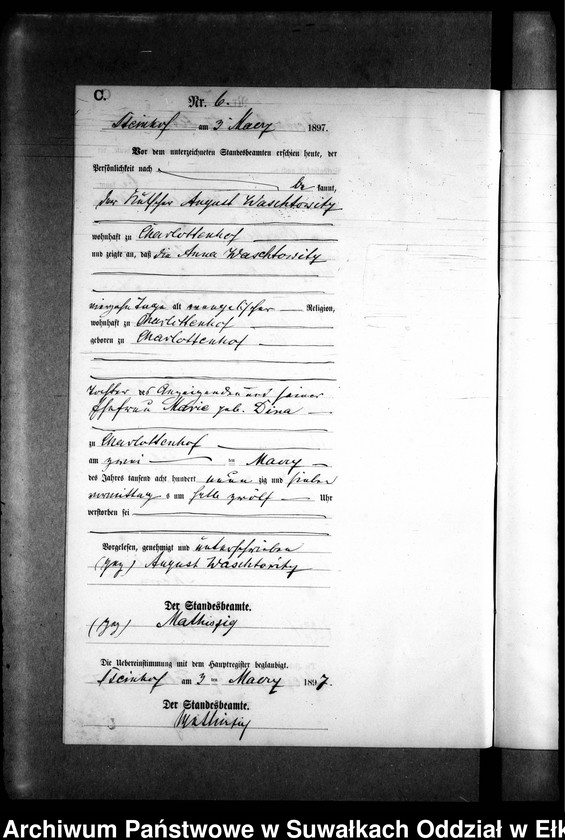 C.
Nr. 6.
Steinhof am 3ten Maerz 1897.
Vor dem unterzeichneten Standesbeamten erschien heute, der
Persönlichkeit nach
be kannt,
der Kutscher August Waschtowitz
wohnhaft zu Charlottenhof
und zeigte an, daß die Anna Waschtowitz
vierzehn Tage alt evangelischer Religion,
wohnhaft zu Charlottenhof
geboren zu Charlottenhof
Tochter des Anzeigenden und seiner
Ehefrau Marie geb. Dina
zu Charlottenhof
am zwei ten Maerz
des Jahres tausend acht hundert neun zig und sieben
vormittag s um halb zwölf Uhr
verstorben sei
Vorgelesen, genehmigt und unterschrieben
(gez) August Waschtowitz
Der Standesbeamte.
(gez)
Die Uebereinstimmung mit dem Hauptregister beglaubigt.
Steinhof am 3 ten Maerz 1897.
Der Standesbeamte.
Archiwum Państwowe w Suwałkach Oddział w Ełk